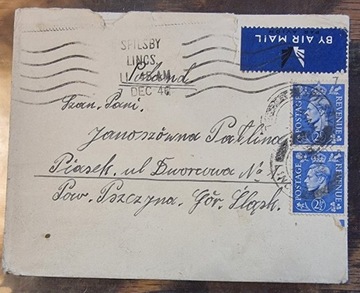 BY AIR MAIL
SPILSBY
LINCS.
AM
DEC 46
Poland
Szan. Pani.
Janoszówna Paulina
Piasek. ul Dworcowa No 1
Pow. Pszczyna. Gór. Śląsk.
POSTAGE REVENUE
2½
POSTAGE REVENUE
2½